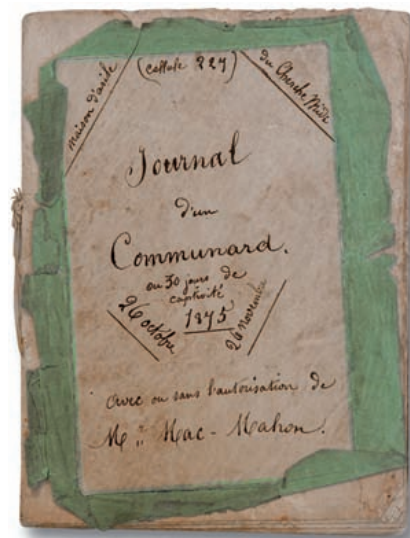 maison d'asile
(cellule 227)
du Cherche Midi
Journal
d'un
Communard.
ou 30 jours de
captivité
26 octobre
1875
26 novembre
Avec ou sans l'autorisation de
Mr Mac-Mahon.